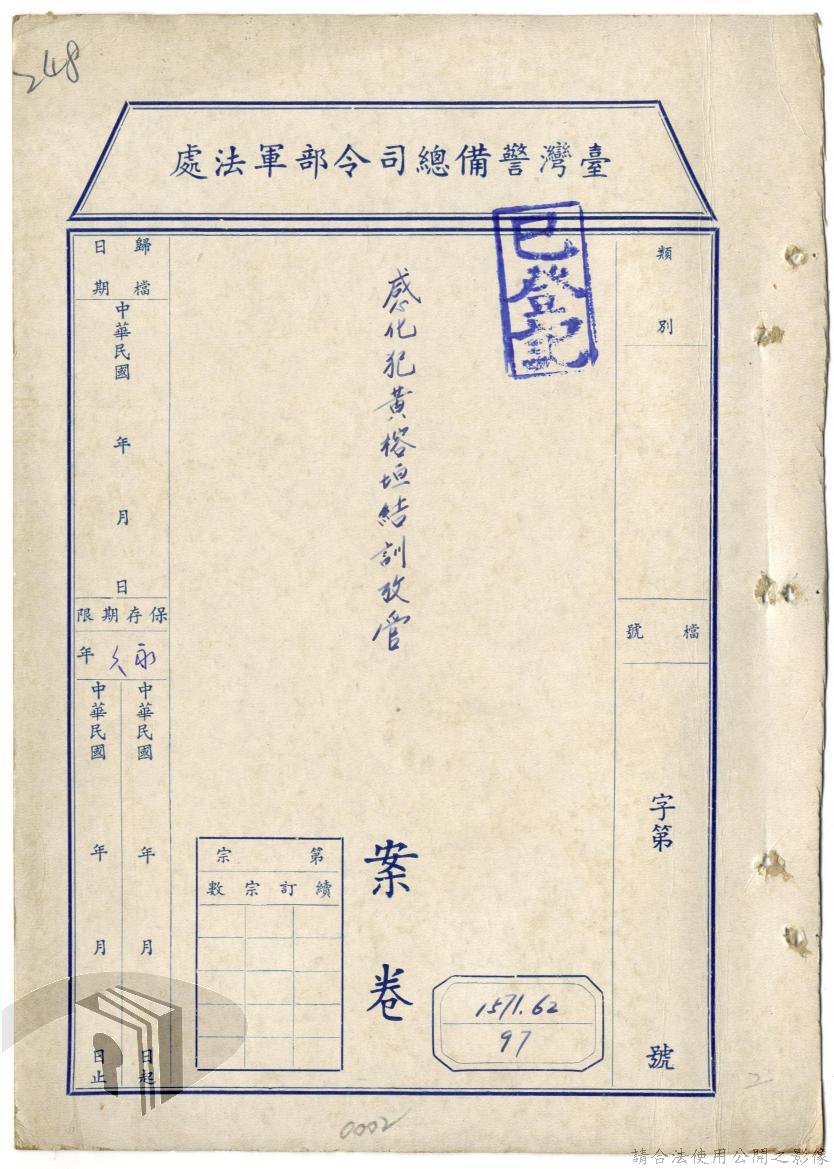 248
臺灣警備總司令部軍法處
已登記
類別
檔號
字第
號
感化犯黃榕垣結訓改管
案卷
1571.62
97
第宗
續訂宗數
歸檔日期
中華民國 年 月 日
保存期限
永久年
中華民國 年 月 日起
中華民國 年 月 日止
0002
2
請合法使用公開之影像